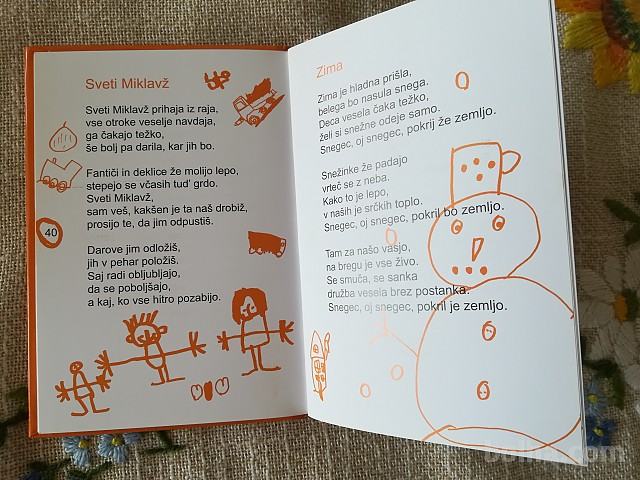 Sveti Miklavž
Sveti Miklavž prihaja iz raja,
vse otroke veselje navdaja,
ga čakajo težko,
še bolj pa darila, kar jih bo.
Fantiči in deklice že molijo lepo,
stepejo se včasih tud' grdo.
Sveti Miklavž,
sam veš, kakšen je ta naš drobiž,
prosijo te, da jim odpustiš.
Darove jim odložiš,
jih v pehar položiš.
Saj radi obljubljajo,
da se poboljšajo,
a kaj, ko vse hitro pozabijo.
40
Zima
Zima je hladna prišla,
belega bo nasula snega.
Deca vesela čaka težko,
želi si snežne odeje samo.
Snegec, oj snegec, pokrij že zemljo.
Snežinke že padajo
vrteč se z neba.
Kako to je lepo,
v naših je srčkih toplo.
Snegec, oj snegec, pokril bo zemljo.
Tam za našo vasjo,
na bregu je vse živo.
Se smuča, se sanka
družba vesela brez postanka.
Snegec, oj snegec, pokril je zemljo.
bolha.com